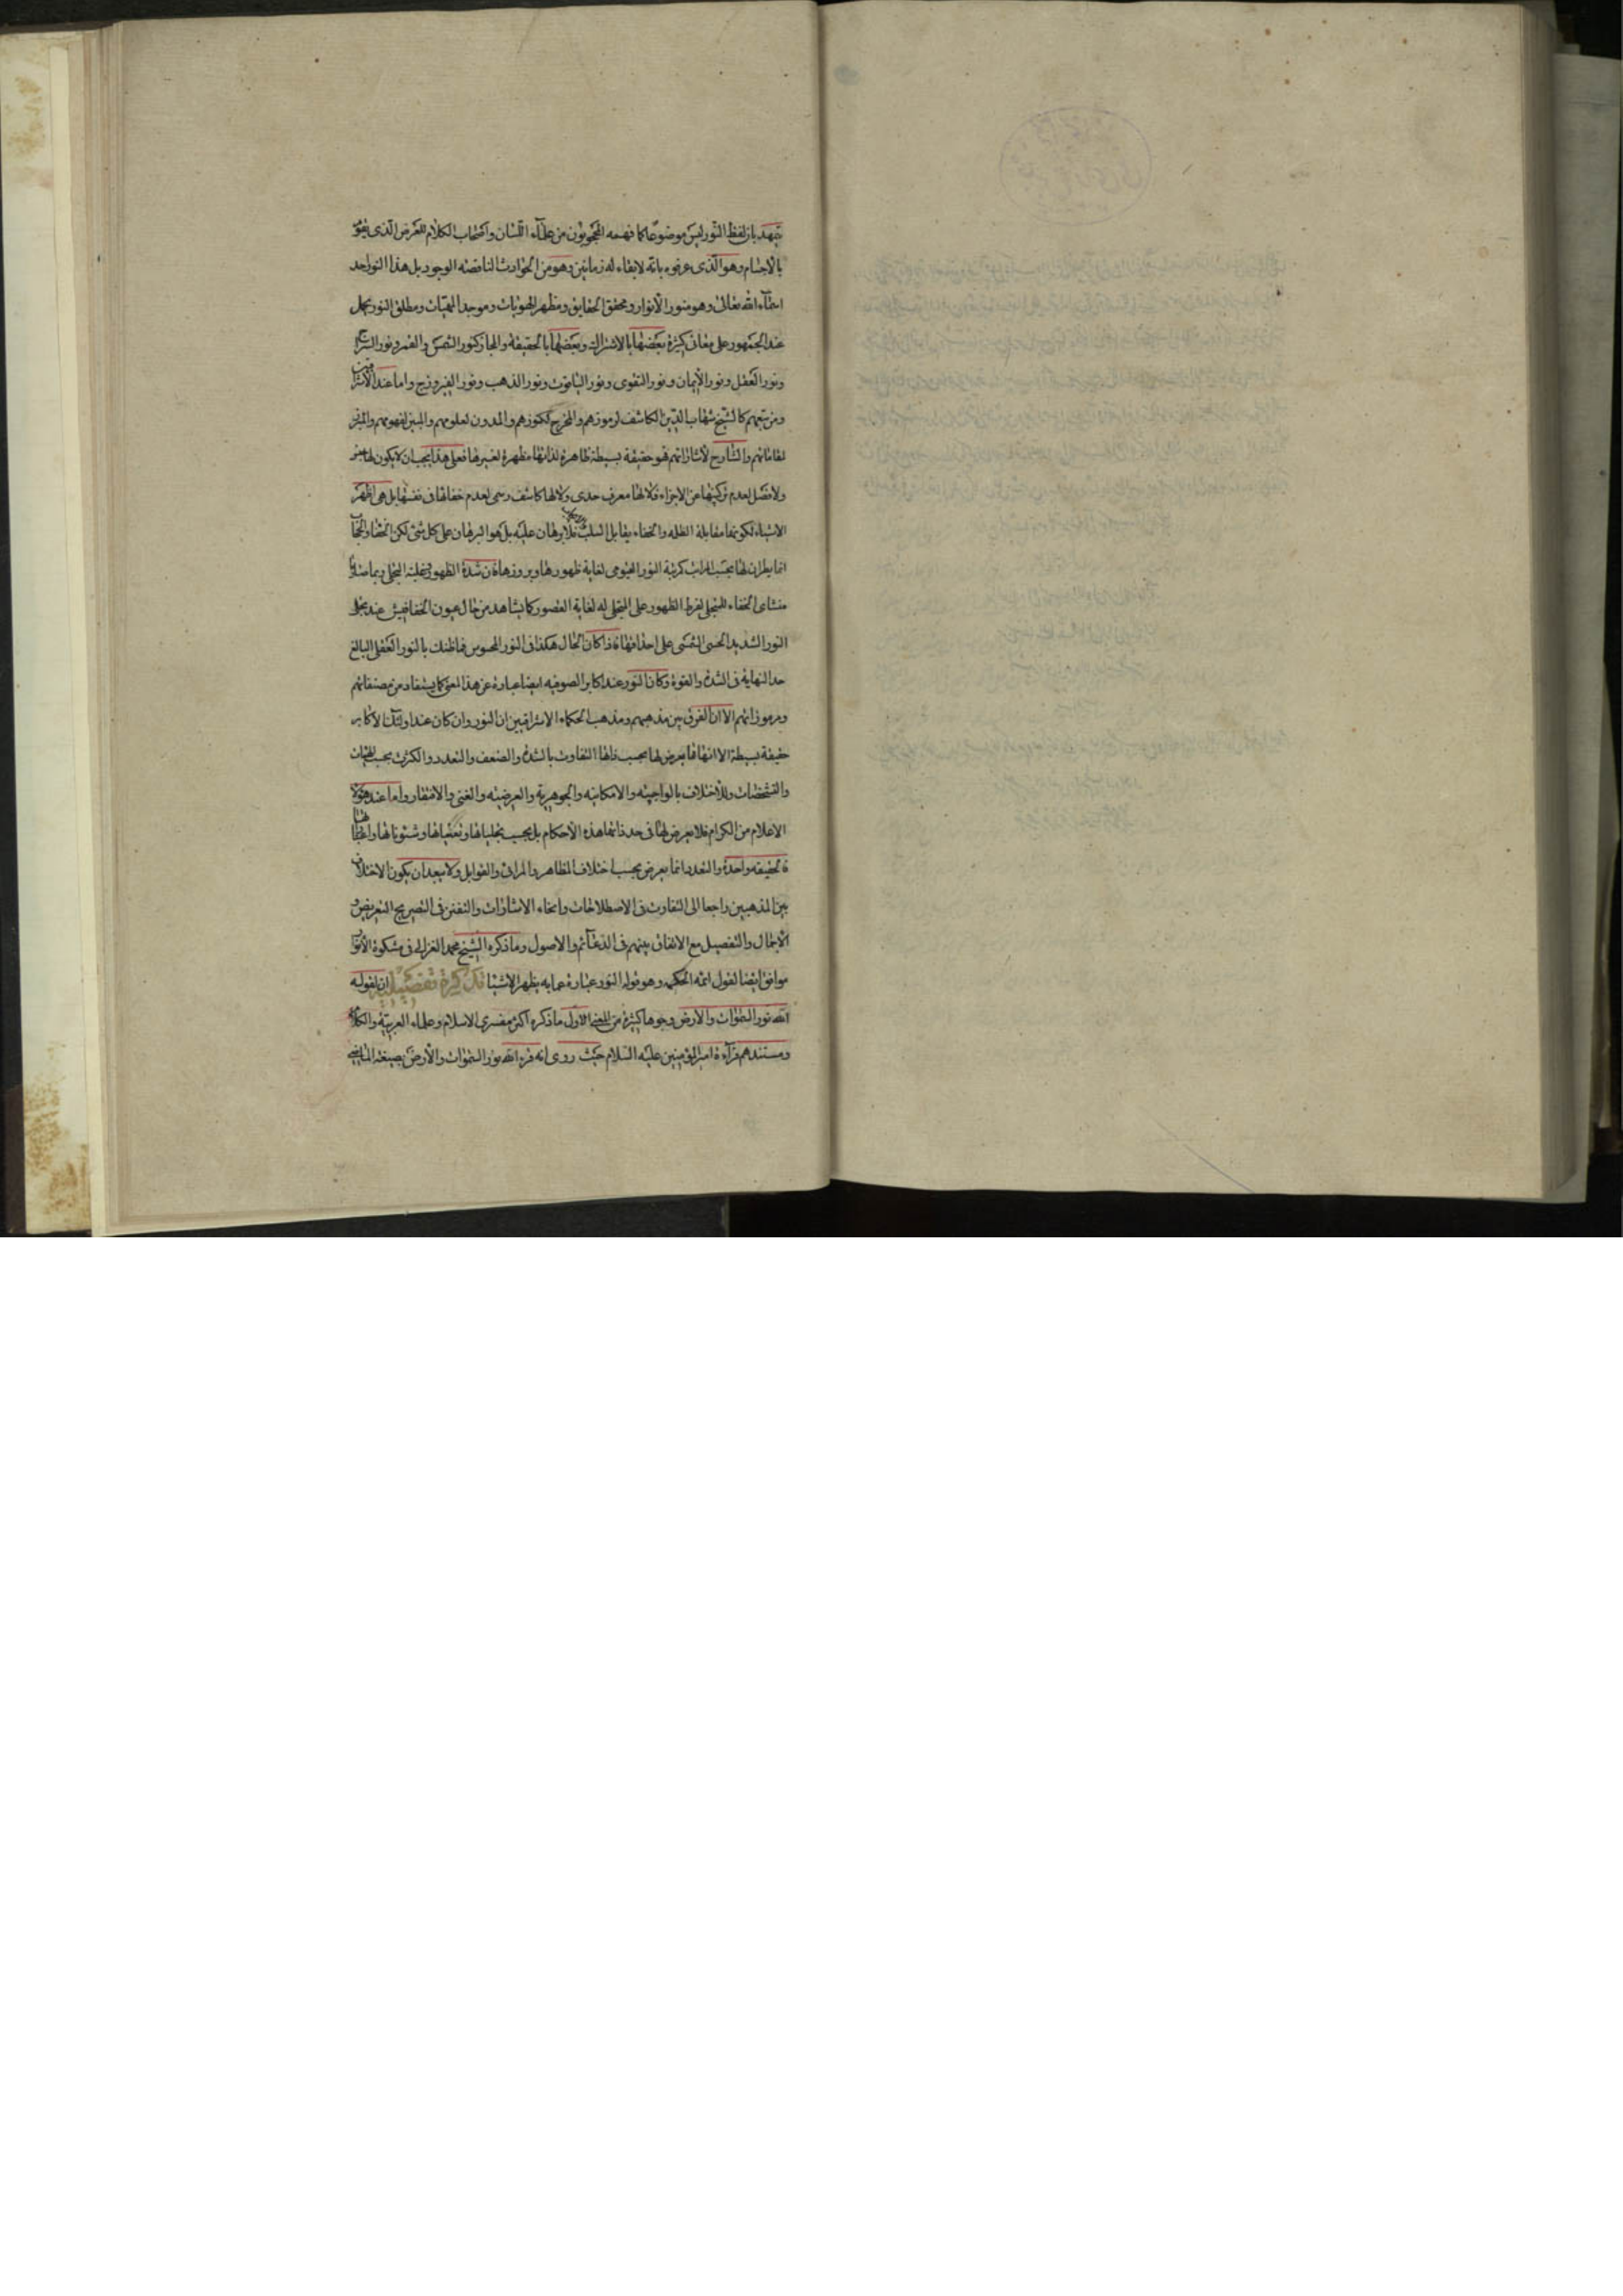 تمهيد بان لفظ النور ليس موضوعا كما فهمه المحجوبون من علماء اللسان واصحاب الكلام للعرض الذى يقوم
بالاجسام وهو الذى عرفوه بانه لا بقاء له زمانين وهو من الحوادث الناقصة الوجود بل هذا النور احد
اسماء الله تعالى وهو منور الانوار ومحقق الحقايق ومظهر الهويات وموجد المهيات ومطلق النور يحمل
عند الجمهور على معانى كثيرة بعضها بالاشتراك وبعضها بالحقيقة والمجاز كنور الشمس والقمر ونور السراج
ونور العقل ونور الايمان ونور التقوى ونور الياقوت ونور الذهب ونور الفيروزج واما عند الاشراقيين
ومن تبعهم كالشيخ شهاب الدين الكاشف لرموزهم والمخرج لكنوزهم والمدون لعلومهم والمبين لفهومهم والمبرز
لمقاماتهم والشارح لاشاراتهم فهو حقيقة بسيطة ظاهرة لذاتها مظهرة لغيرها فعلى هذا يجب ان لا يكون لها جنس
ولا فصل لعدم تركبها عن الاجزاء فلا لها معرف حدى ولا لها كاشف رسمى لعدم خفائها فى نفسها بل هى اظهر
الاشياء لكونها مقابلة الظلمة والخفاء يقابل السلب فلا برهان عليه بل هو البرهان على كل شئ لكن الخفاء والحجاب
انما يطران لها بحسب المراتب كمرتبة النور القيومى لغاية ظهورها وبروزها فان شدة الظهور وغلبة التجلى ربما صارتا
منشاى الخفاء للمتجلى لفرط الظهور على المتجلى له لغاية القصور كما يشاهد من حال عيون الخفافيش عند تجلى
النور الشديد الحسى الشمسى على احداقها فاذا كان الحال هكذا فى النور المحسوس فما ظنك بالنور العقلى البالغ
حد النهاية فى الشدة والقوة وكان النور عند اكابر الصوفيه ايضا عبارة عن هذا المعنى كما يستفاد من مصنفاتهم
ومرموزاتهم الا ان الفرق بين مذهبهم ومذهب الحكماء الاشراقيين ان النور وان كان عند اولئك الاكابر
حقيقة بسيطة الا انها مما يعرض لها بحسب ذاتها التفاوت بالشدة والضعف والتعدد والكثرة بحسب الهيئات
والتشخصات والاختلاف بالواجبيه والامكانيه والجوهرية والعرضيه والغنى والافتقار واما عند هؤلاء
الاعلام من الكرام فلا يعرض لها فى حد ذاتها هذه الاحكام بل بحسب تجلياتها وتعيناتها وشئوناتها واعتباراتها
فالحقيقه واحدة والتعدد انما يعرض بحسب اختلاف المظاهر والمرائى والقوابل ولا يبعد ان يكون الاختلاف
بين المذهبين راجعا الى التفاوت فى الاصطلاحات وانحاء الاشارات والتفنن فى التصريح والتعريض و
الاجمال والتفصيل مع الاتفاق بينهم فى الدعائم والاصول وما ذكره الشيخ محمد الغزالى فى مشكوة الانوار
موافق ايضا لقول ائمه الحكمه وهو قوله النور عبارة عما به يظهر الاشياء تذكرة تفصيلية ان لقوله
الله نور السموات والارض وجوها كثيرة من المعنى الاول ما ذكره اكثر مفسرى الاسلام وعلماء العربية والكلام
ومستندهم قراءة امير المؤمنين عليه السلام حيث روى انه قرء الله نور السموات والارض بصيغة الماضى